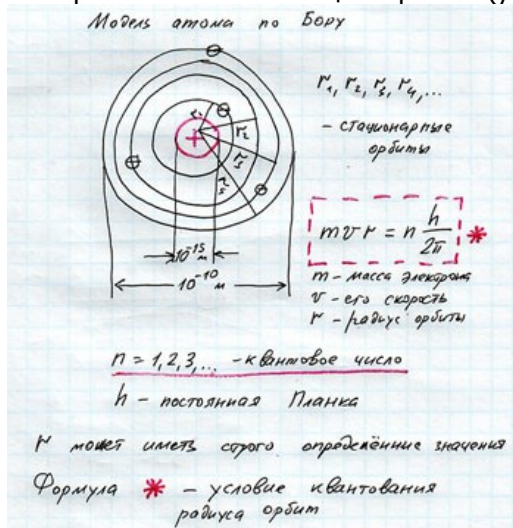 Модель атома по Бору
r₁, r₂, r₃, r₄, ...
- стационарные
орбиты
r₂
r₃
+
10⁻¹⁵ м
10⁻¹⁰ м
mvr = n h/2π *
m - масса электрона
v - его скорость
r - радиус орбиты
n = 1, 2, 3, ... - квантовое число
h - постоянная Планка
r может иметь строго определённые значения
Формула * - условие квантования
радиуса орбит